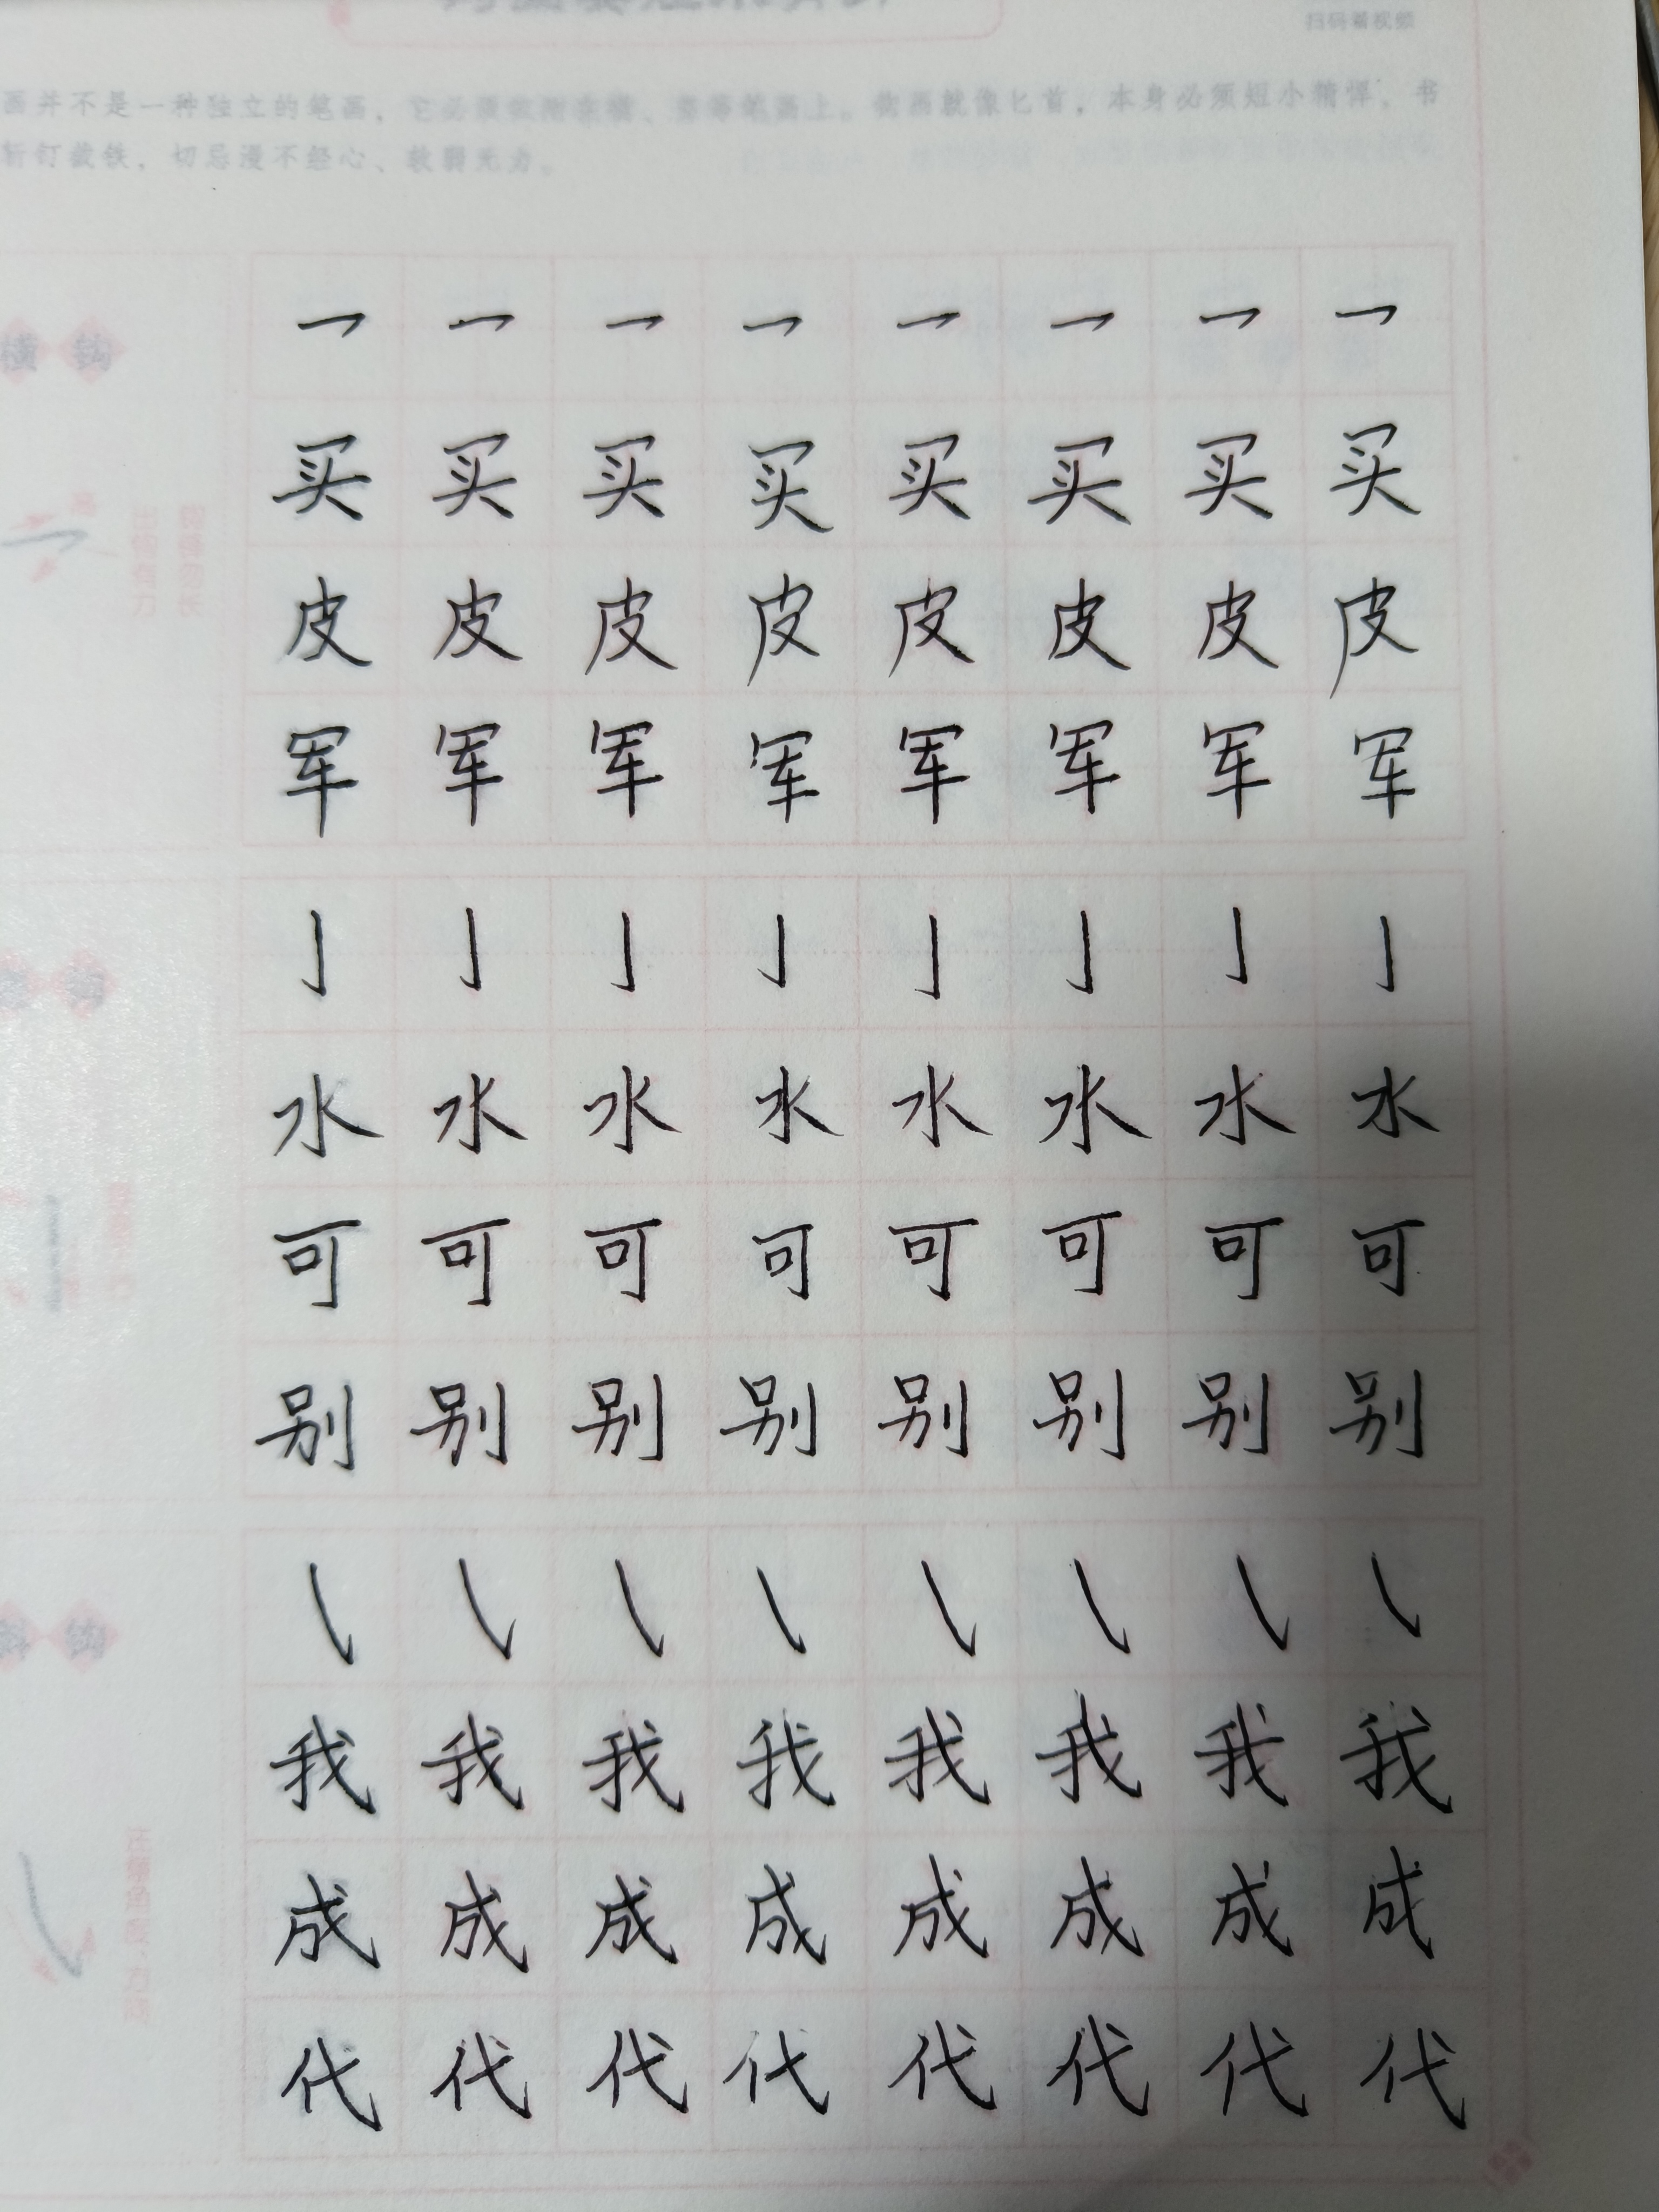 扫码看视频
画并不是一种独立的笔画，它必须依附在横、竖等笔画上。钩画就像匕首，本身必须短小精悍，书
斩钉截铁，切忌漫不经心、软弱无力。
横钩
买 买 买 买 买 买 买 买
皮 皮 皮 皮 皮 皮 皮 皮
军 军 军 军 军 军 军 军
亅 亅 亅 亅 亅 亅 亅 亅
水 水 水 水 水 水 水 水
可 可 可 可 可 可 可 可
别 别 别 别 别 别 别 别
斜钩
我 我 我 我 我 我 我 我
成 成 成 成 成 成 成 成
代 代 代 代 代 代 代 代